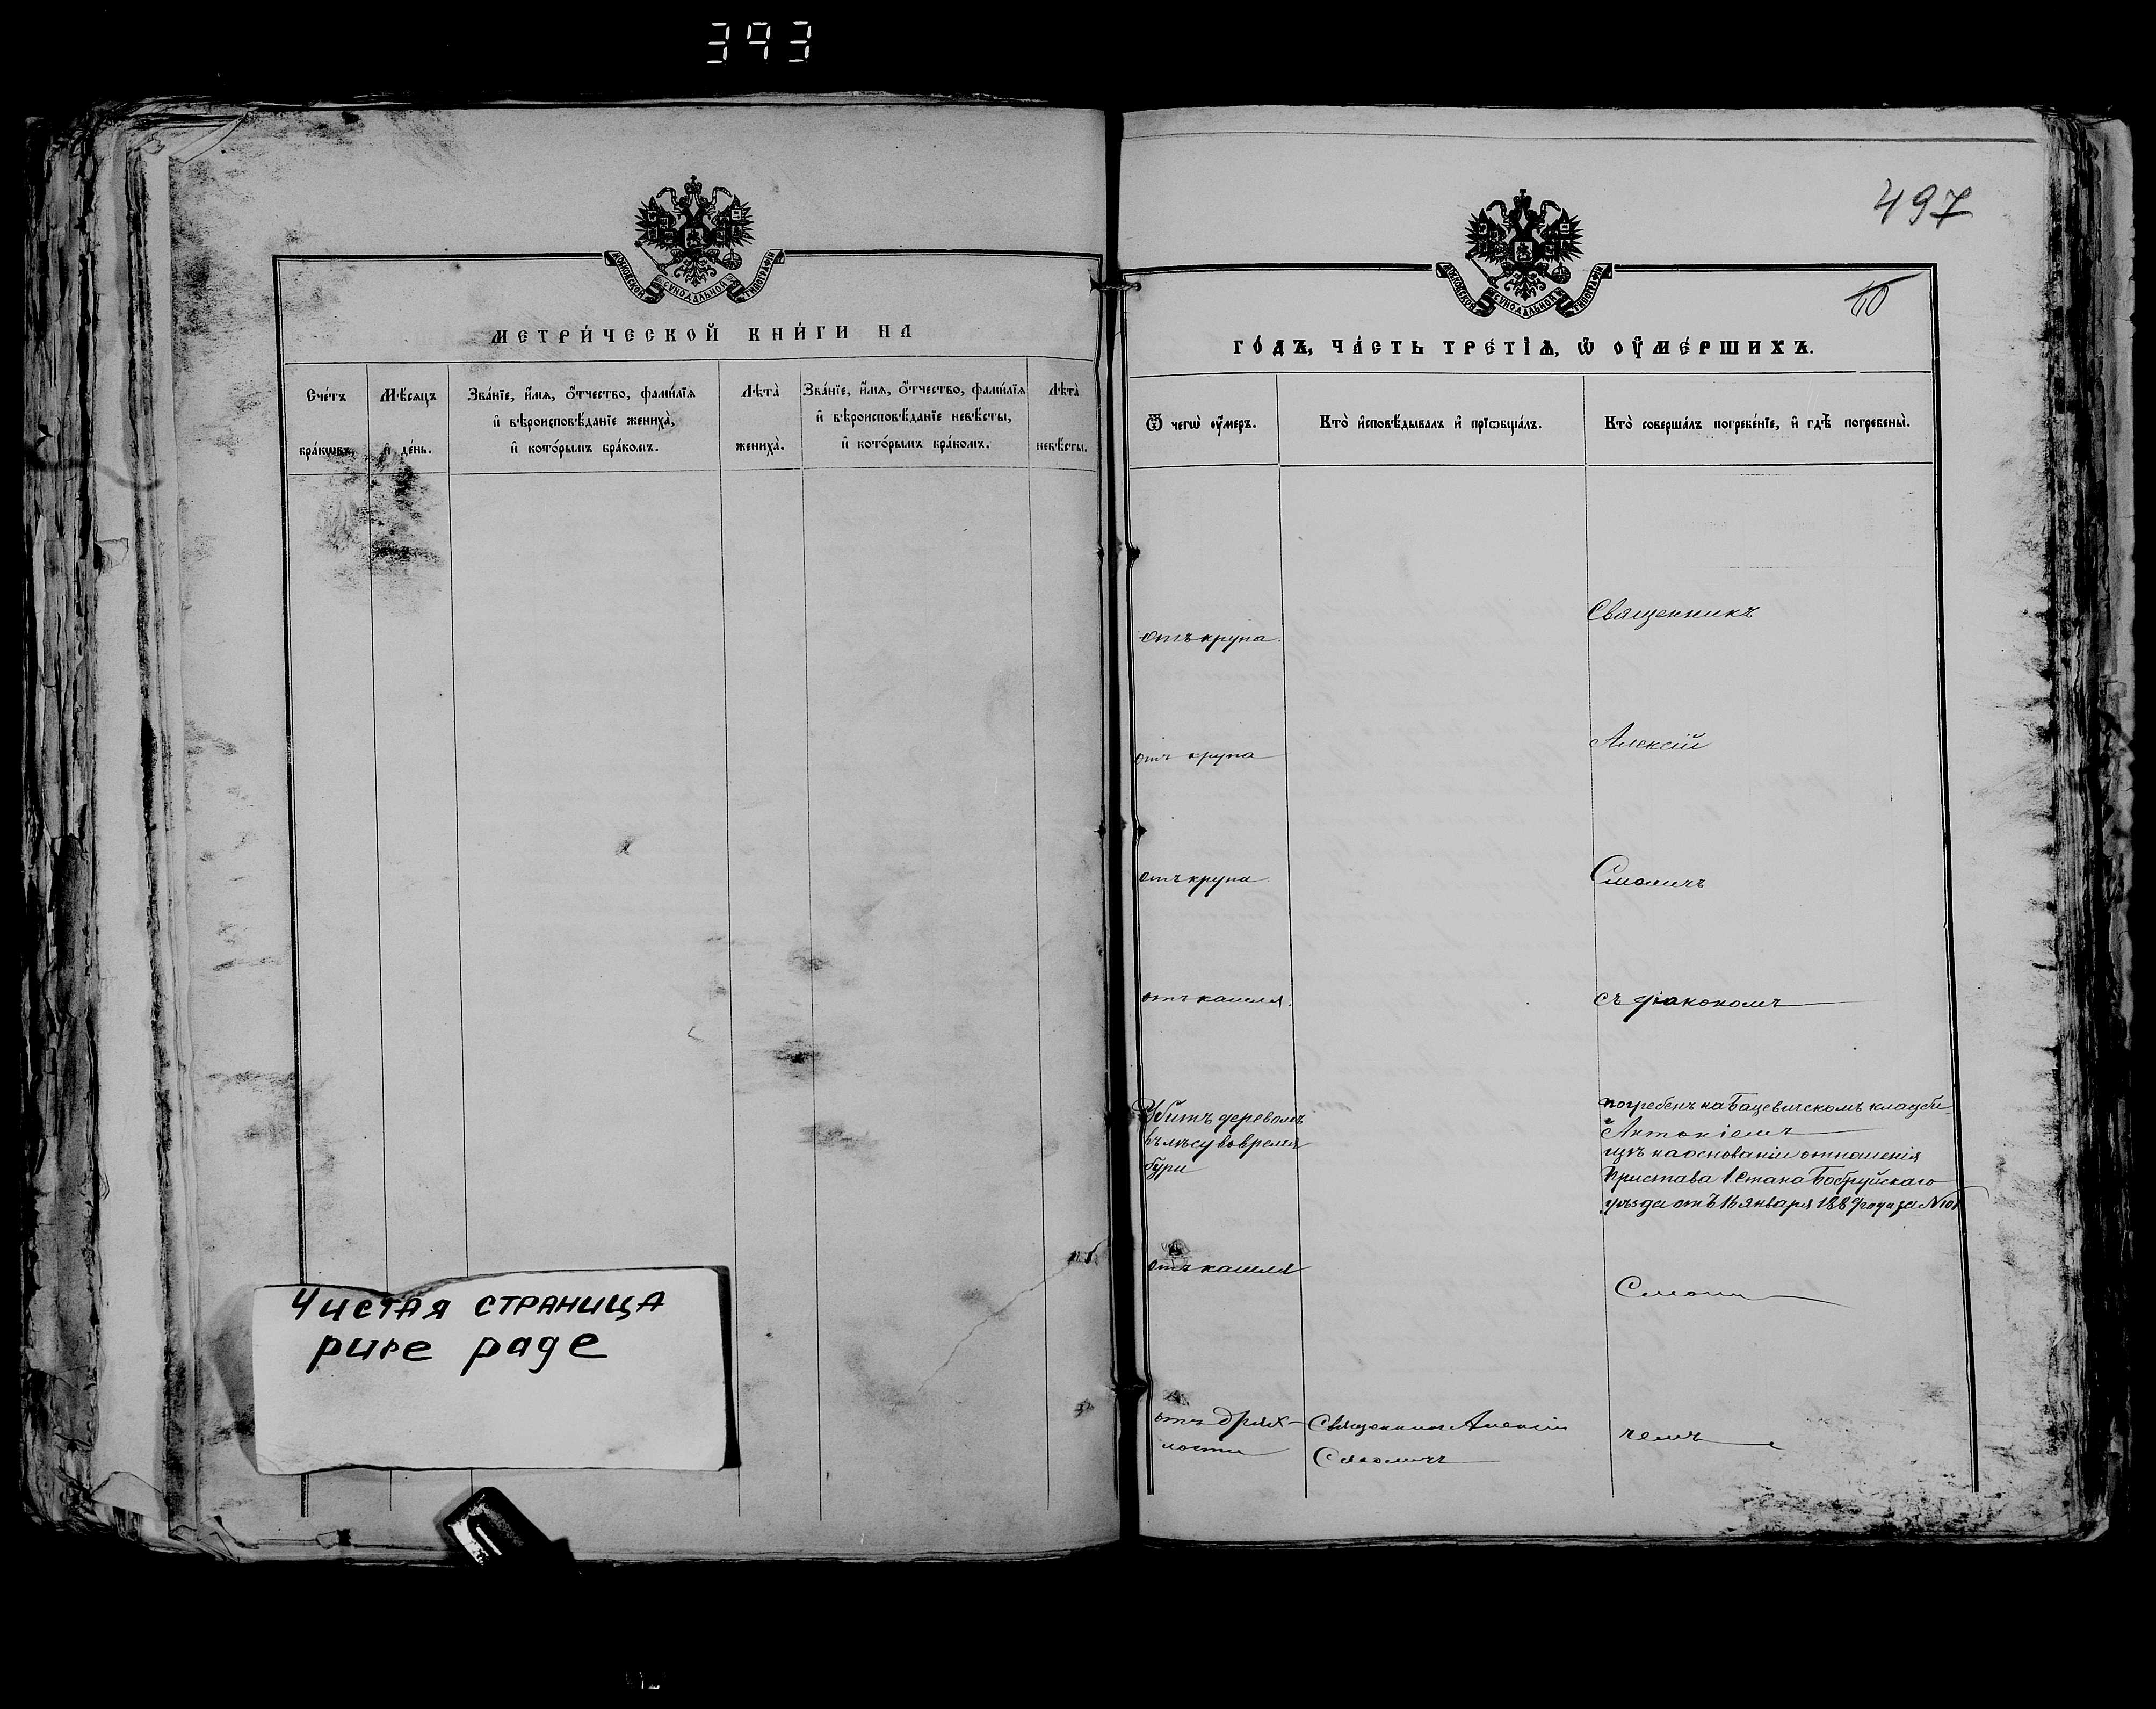 393
МОСКОВСКОЙ СѴНОДАЛЬНОЙ ТИПОГРАФІИ
МЕТРИ́ЧЕСКОЙ КНИ́ГИ НА
Сче́тъ
бра́кωвъ.
Мѣ́сяцъ
и҆ де́нь.
Зва́нїе, и҆́мѧ, ѻ҆́тчество, фами́лїѧ
и҆ вѣроисповѣ́данїе жениха̀,
и҆ кото́рымъ бра́комъ.
Лѣта̀
жениха̀.
Зва́нїе, и҆́мѧ, ѻ҆́тчество, фами́лїѧ
и҆ вѣроисповѣ́данїе невѣ́сты,
и҆ кото́рымъ бра́комъ.
Лѣта̀
невѣ́сты.
Чистая страница
pure page
497
10
МОСКОВСКОЙ СѴНОДАЛЬНОЙ ТИПОГРАФІИ
ГО́ДЪ, ЧА́СТЬ ТРЕ́ТЇѦ, Ѡ҆ ОУ҆МЕ́РШИХЪ.
Ѿ чегѡ̀ оу҆́меръ.
Кто̀ и҆сповѣ́дывалъ и҆ прїѡбща́лъ.
Кто̀ соверша́лъ погребе́нїе, и҆ гдѣ̀ погребены̀.
отъ крупа.
Священникъ
отъ крупа
Алексій
отъ крупа
Смоличъ
отъ кашля.
съ діакономъ
Убитъ деревомъ
въ лѣсу во время
бури
погребенъ на Бацевичскомъ кладби
Антоніемъ
щѣ на основаніи отношенія
Пристава 1. стана Бобруйскаго
уѣзда отъ 16 января 1889 года за № 101
отъ кашля
Смоли
отъ дрях-
лости
Священникъ Алексій
Смоличъ
чемъ